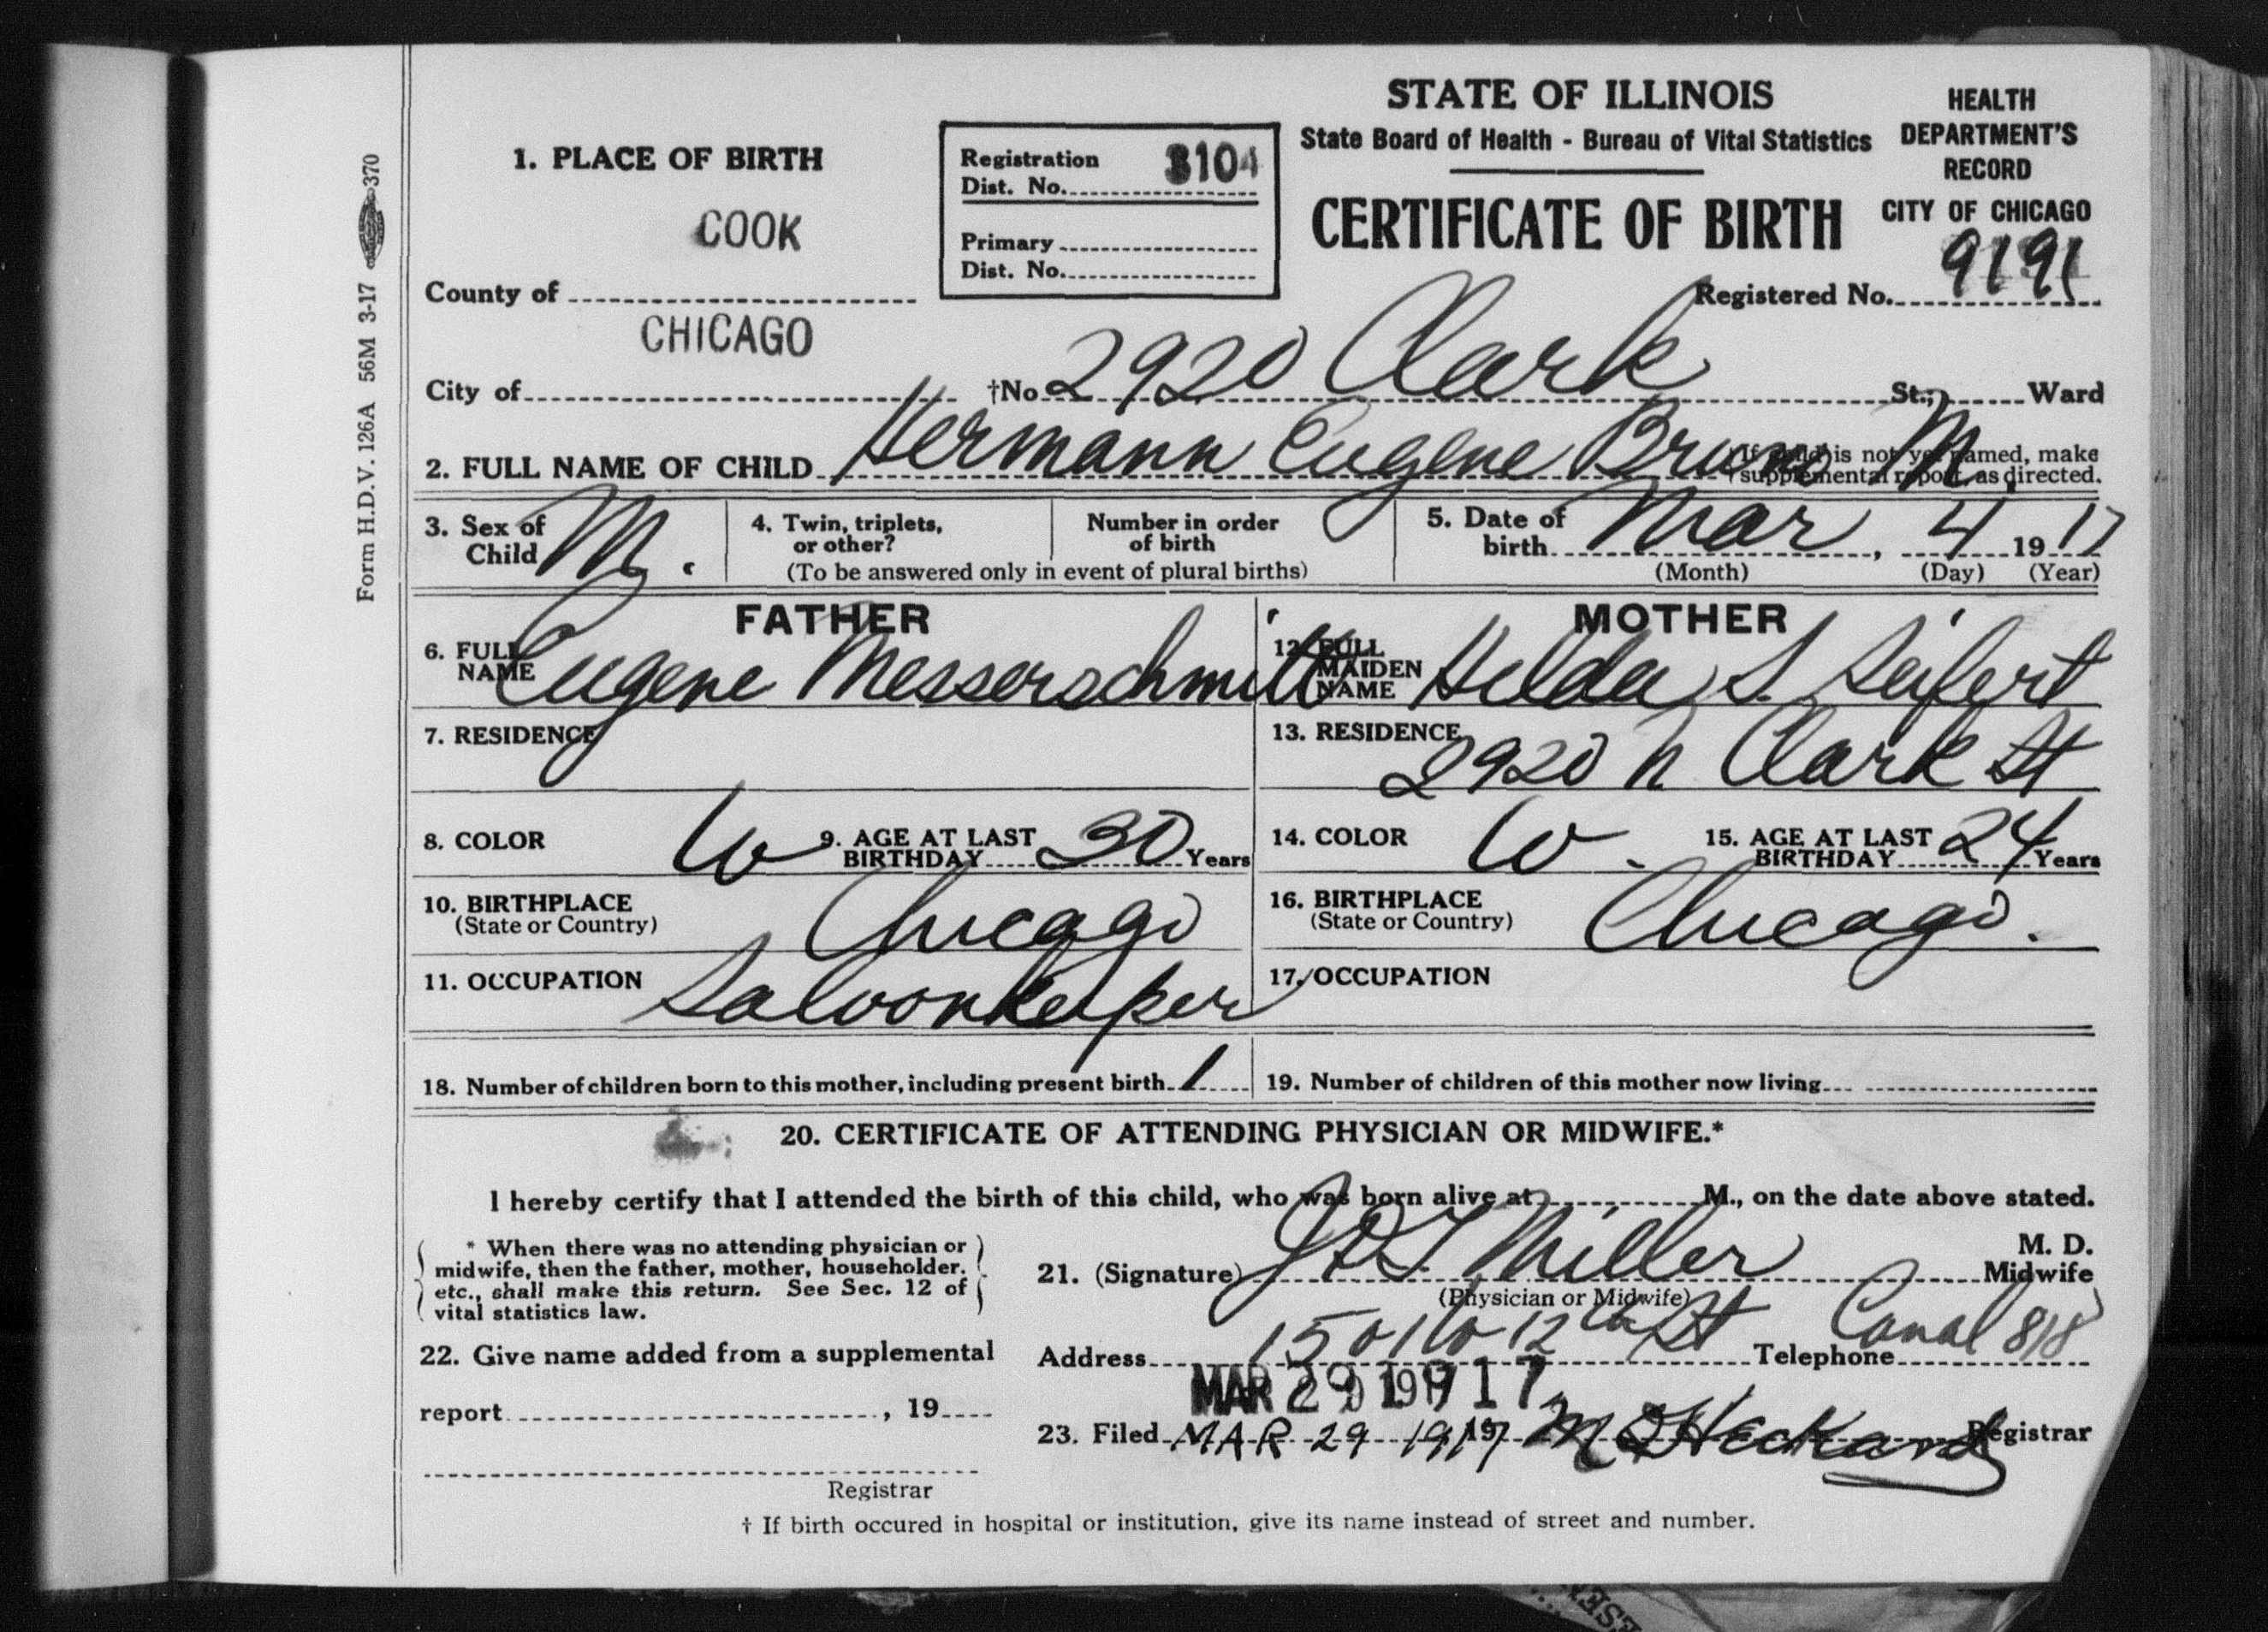 STATE OF ILLINOIS
State Board of Health - Bureau of Vital Statistics
CERTIFICATE OF BIRTH
HEALTH
DEPARTMENT'S
RECORD
CITY OF CHICAGO
Registered No. 9191
1. PLACE OF BIRTH
Registration
Dist. No. 3104
Primary
Dist. No.
COOK
County of
CHICAGO
City of †No 2920 Clark St., Ward
2. FULL NAME OF CHILD Hermann Eugene Bruno M.
(If child is not yet named, make
supplemental report, as directed.
3. Sex of
Child M.
4. Twin, triplets,
or other?
Number in order
of birth
(To be answered only in event of plural births)
5. Date of
birth Mar, 4 1917
(Month) (Day) (Year)
FATHER
6. FULL
NAME Eugene Messerschmitt
7. RESIDENCE
8. COLOR W 9. AGE AT LAST
BIRTHDAY 30 Years
10. BIRTHPLACE
(State or Country) Chicago
11. OCCUPATION Saloonkeeper
MOTHER
12. FULL
MAIDEN
NAME Hilda S. Seifert
13. RESIDENCE
2920 N Clark St
14. COLOR W. 15. AGE AT LAST
BIRTHDAY 24 Years
16. BIRTHPLACE
(State or Country) Chicago.
17. OCCUPATION
18. Number of children born to this mother, including present birth 1
19. Number of children of this mother now living
20. CERTIFICATE OF ATTENDING PHYSICIAN OR MIDWIFE.*
I hereby certify that I attended the birth of this child, who was born alive at M., on the date above stated.
* When there was no attending physician or
midwife, then the father, mother, householder.
etc., shall make this return. See Sec. 12 of
vital statistics law.
21. (Signature) Miller
M. D.
Midwife
(Physician or Midwife)
Address 1501 W 12th St Telephone Canal 818
22. Give name added from a supplemental
report , 19
Registrar
MAR 29 1917
23. Filed MAR 29 1917 19 M O Heckard Registrar
† If birth occured in hospital or institution, give its name instead of street and number.
Form H.D.V. 126A 56M 3-17 370